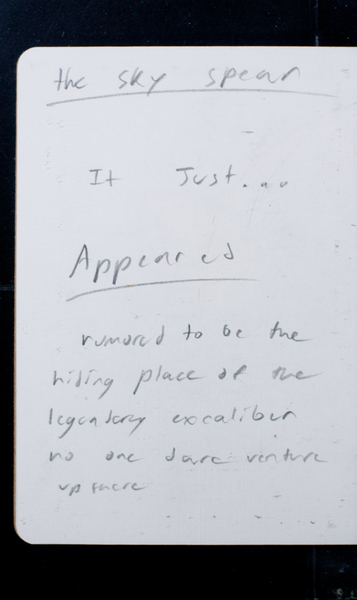 the sky spear
It Just...
Appeared
rumored to be the
hiding place of the
legendary excaliber
no one dare venture
up there